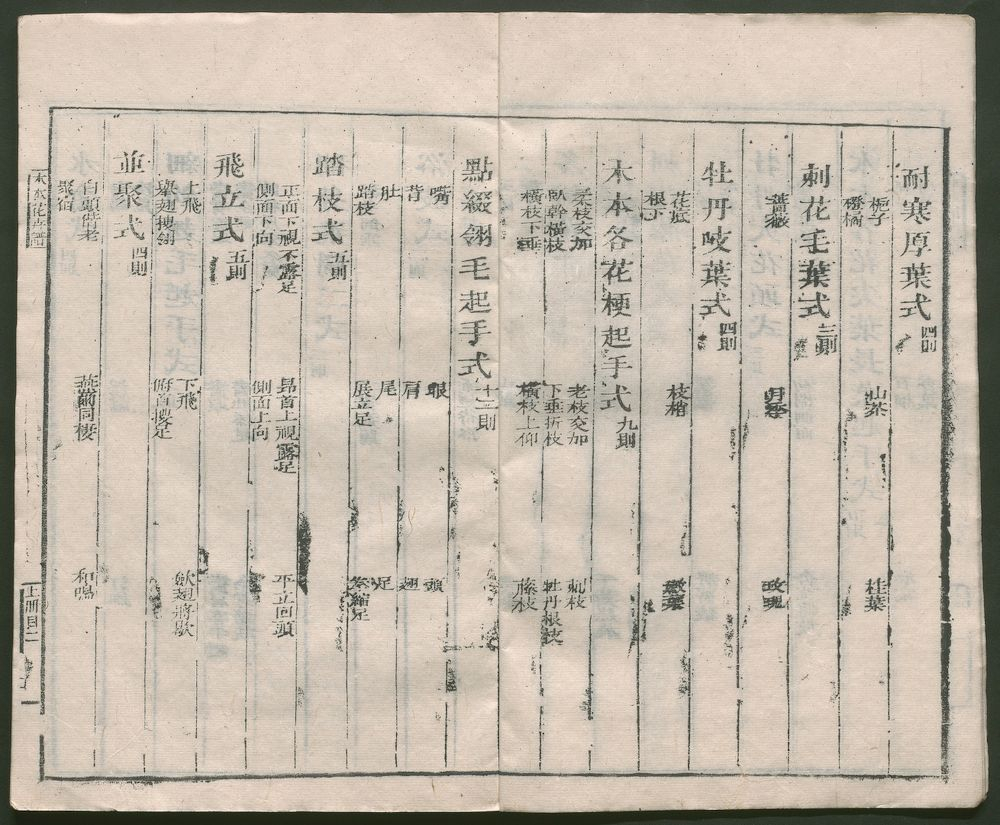 耐寒厚葉式 四則
梔子 山茶 桂葉
橙橘
刺花毛葉式 三則
薔薇 月季 玫瑰
牡丹岐葉式 四則
花底 枝梢
根下
木本各花梗起手式 九則
柔枝交加 老枝交加
臥幹橫枝 下垂折枝 牡丹根枝
橫枝下垂 橫枝上仰 藤枝
點綴翎毛起手式 十二則
嘴 眼 頭
背 肩 翅
肚 尾 足
踏枝 展立足 拳縮足
踏枝式 五則
正面下視不露足 昂首上視露足 平立回頭
側面下向 側面上向
飛立式 五則
上飛 下飛 歛翅將歇
翅搜翎 俯首搜足
並聚式 四則
白頭偕老 燕爾同棲 和鳴
聚宿
上冊目二